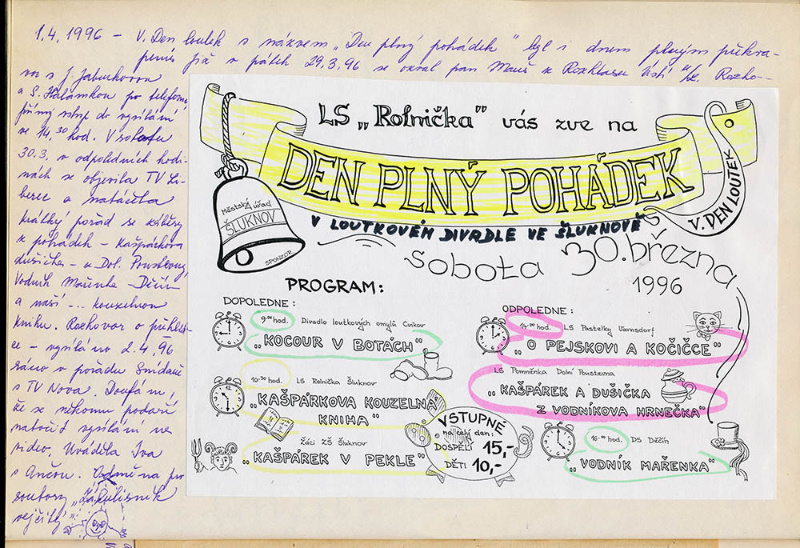 1.4. 1996 - V. Den loutek s názvem „Den plný pohádek" byl s dnem plným překva-
pení. Již v pátek 29.3.96 se ozval pan z Rozhlasu Ústí n/L. Rozho-
va s J. Jaburkovou
a S. Kalámkou po telefonu
přímý vstup do vysílání
ve 14,30 hod. V sobotu
30.3. v odpoledních hodi-
nách se objevila TV Li-
berec a natáčela
krátký pořad se záběry
z pohádek - Kašpárkova
dušička - z Dol. Poustevny,
Vodník Mařenka Děčín
a naší ... kouzelnou
knihu. Rozhovor o přehlíd-
ce - vysíláno 2.4.96
ráno v pořadu Snídaně
s TV Nova. Doufám,
že se někomu podaří
natočit vysílání na
video. Uváděla Iva
s Ančou. Odměna pro
soutěžící
LS „Rolnička" vás zve na
DEN PLNÝ POHÁDEK
V. DEN LOUTEK
V LOUTKOVÉM DIVADLE VE ŠLUKNOVĚ
Městský úřad
ŠLUKNOV
SPONZOR
sobota 30. března
1996
PROGRAM:
DOPOLEDNE:
9⁰⁰ hod. Divadlo loutkových omylů Cvikov
„KOCOUR V BOTÁCH"
10³⁰ hod. LS Rolnička Šluknov
„KAŠPÁRKOVA KOUZELNÁ
KNIHA"
Žáci ZŠ Šluknov
„KAŠPÁREK V PEKLE"
VSTUPNÉ
na celý den:
DOSPĚLÍ 15,-
DĚTI 10,-
ODPOLEDNE:
14⁰⁰ hod. LS Pastelky Varnsdorf
„O PEJSKOVI A KOČIČCE"
LS Pomněnka Dolní Poustevna
„KAŠPÁREK A DUŠIČKA
Z VODNÍKOVA HRNEČKA"
16⁰⁰ hod. DS Děčín
„VODNÍK MAŘENKA"